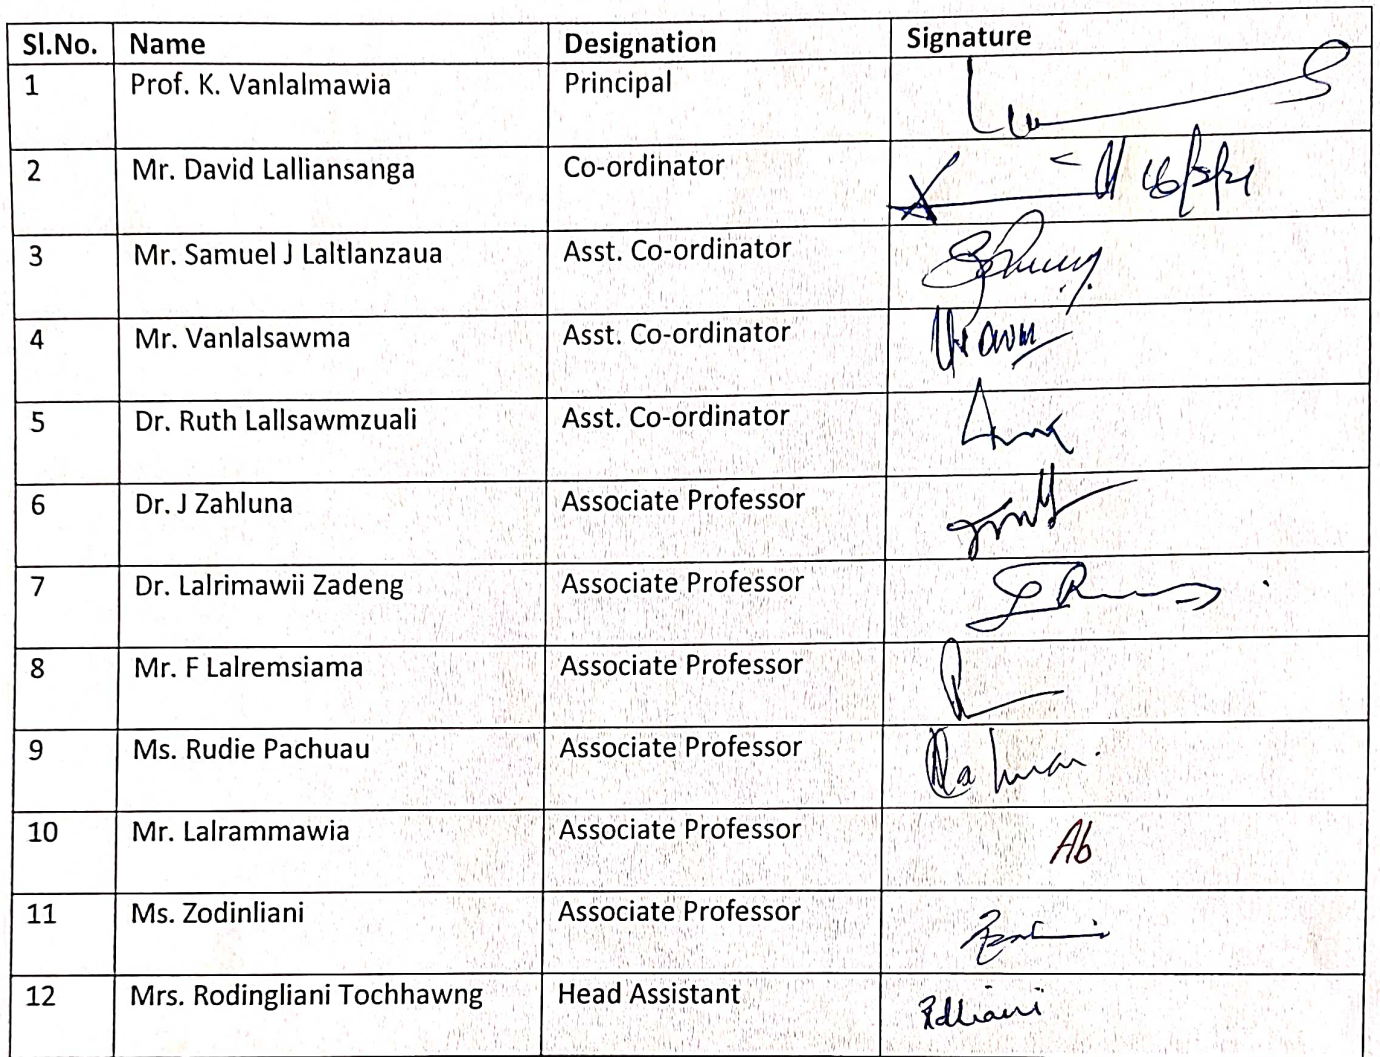 Sl.No. Name Designation Signature
1 Prof. K. Vanlalmawia Principal
2 Mr. David Lalliansanga Co-ordinator
3 Mr. Samuel J Laltlanzaua Asst. Co-ordinator
4 Mr. Vanlalsawma Asst. Co-ordinator
5 Dr. Ruth Lallsawmzuali Asst. Co-ordinator
6 Dr. J Zahluna Associate Professor
7 Dr. Lalrimawii Zadeng Associate Professor
8 Mr. F Lalremsiama Associate Professor
9 Ms. Rudie Pachuau Associate Professor
10 Mr. Lalrammawia Associate Professor Ab
11 Ms. Zodinliani Associate Professor
12 Mrs. Rodingliani Tochhawng Head Assistant